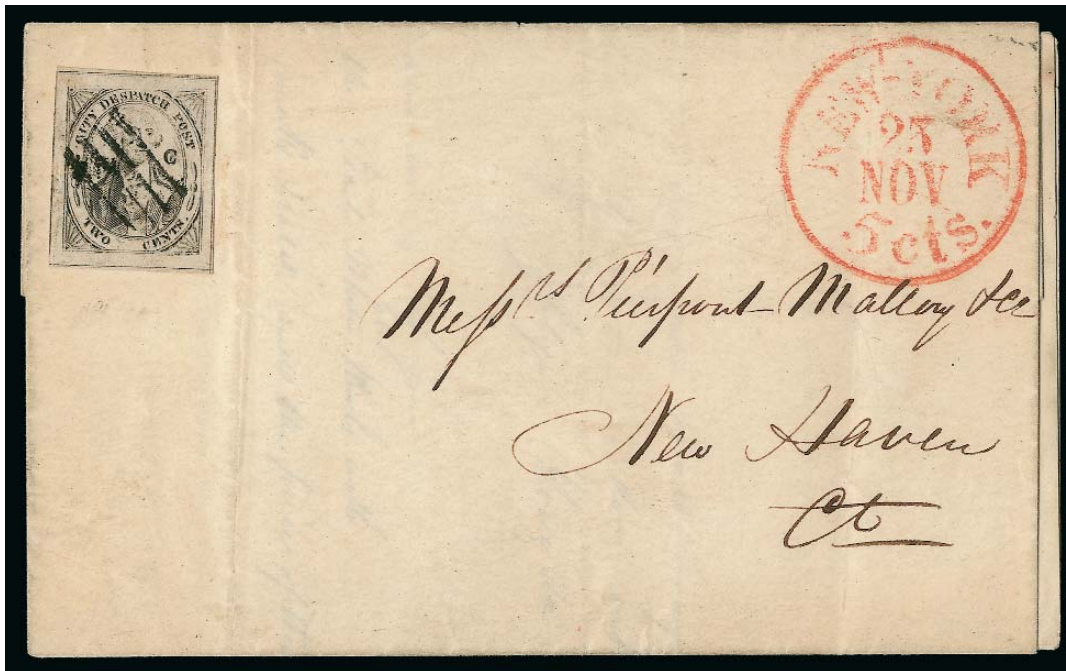 CITY DESPATCH POST
C
TWO CENTS.
NEW-YORK
25
NOV
5 cts.
Messrs Pierpont Mallory &Co
New Haven
Ct